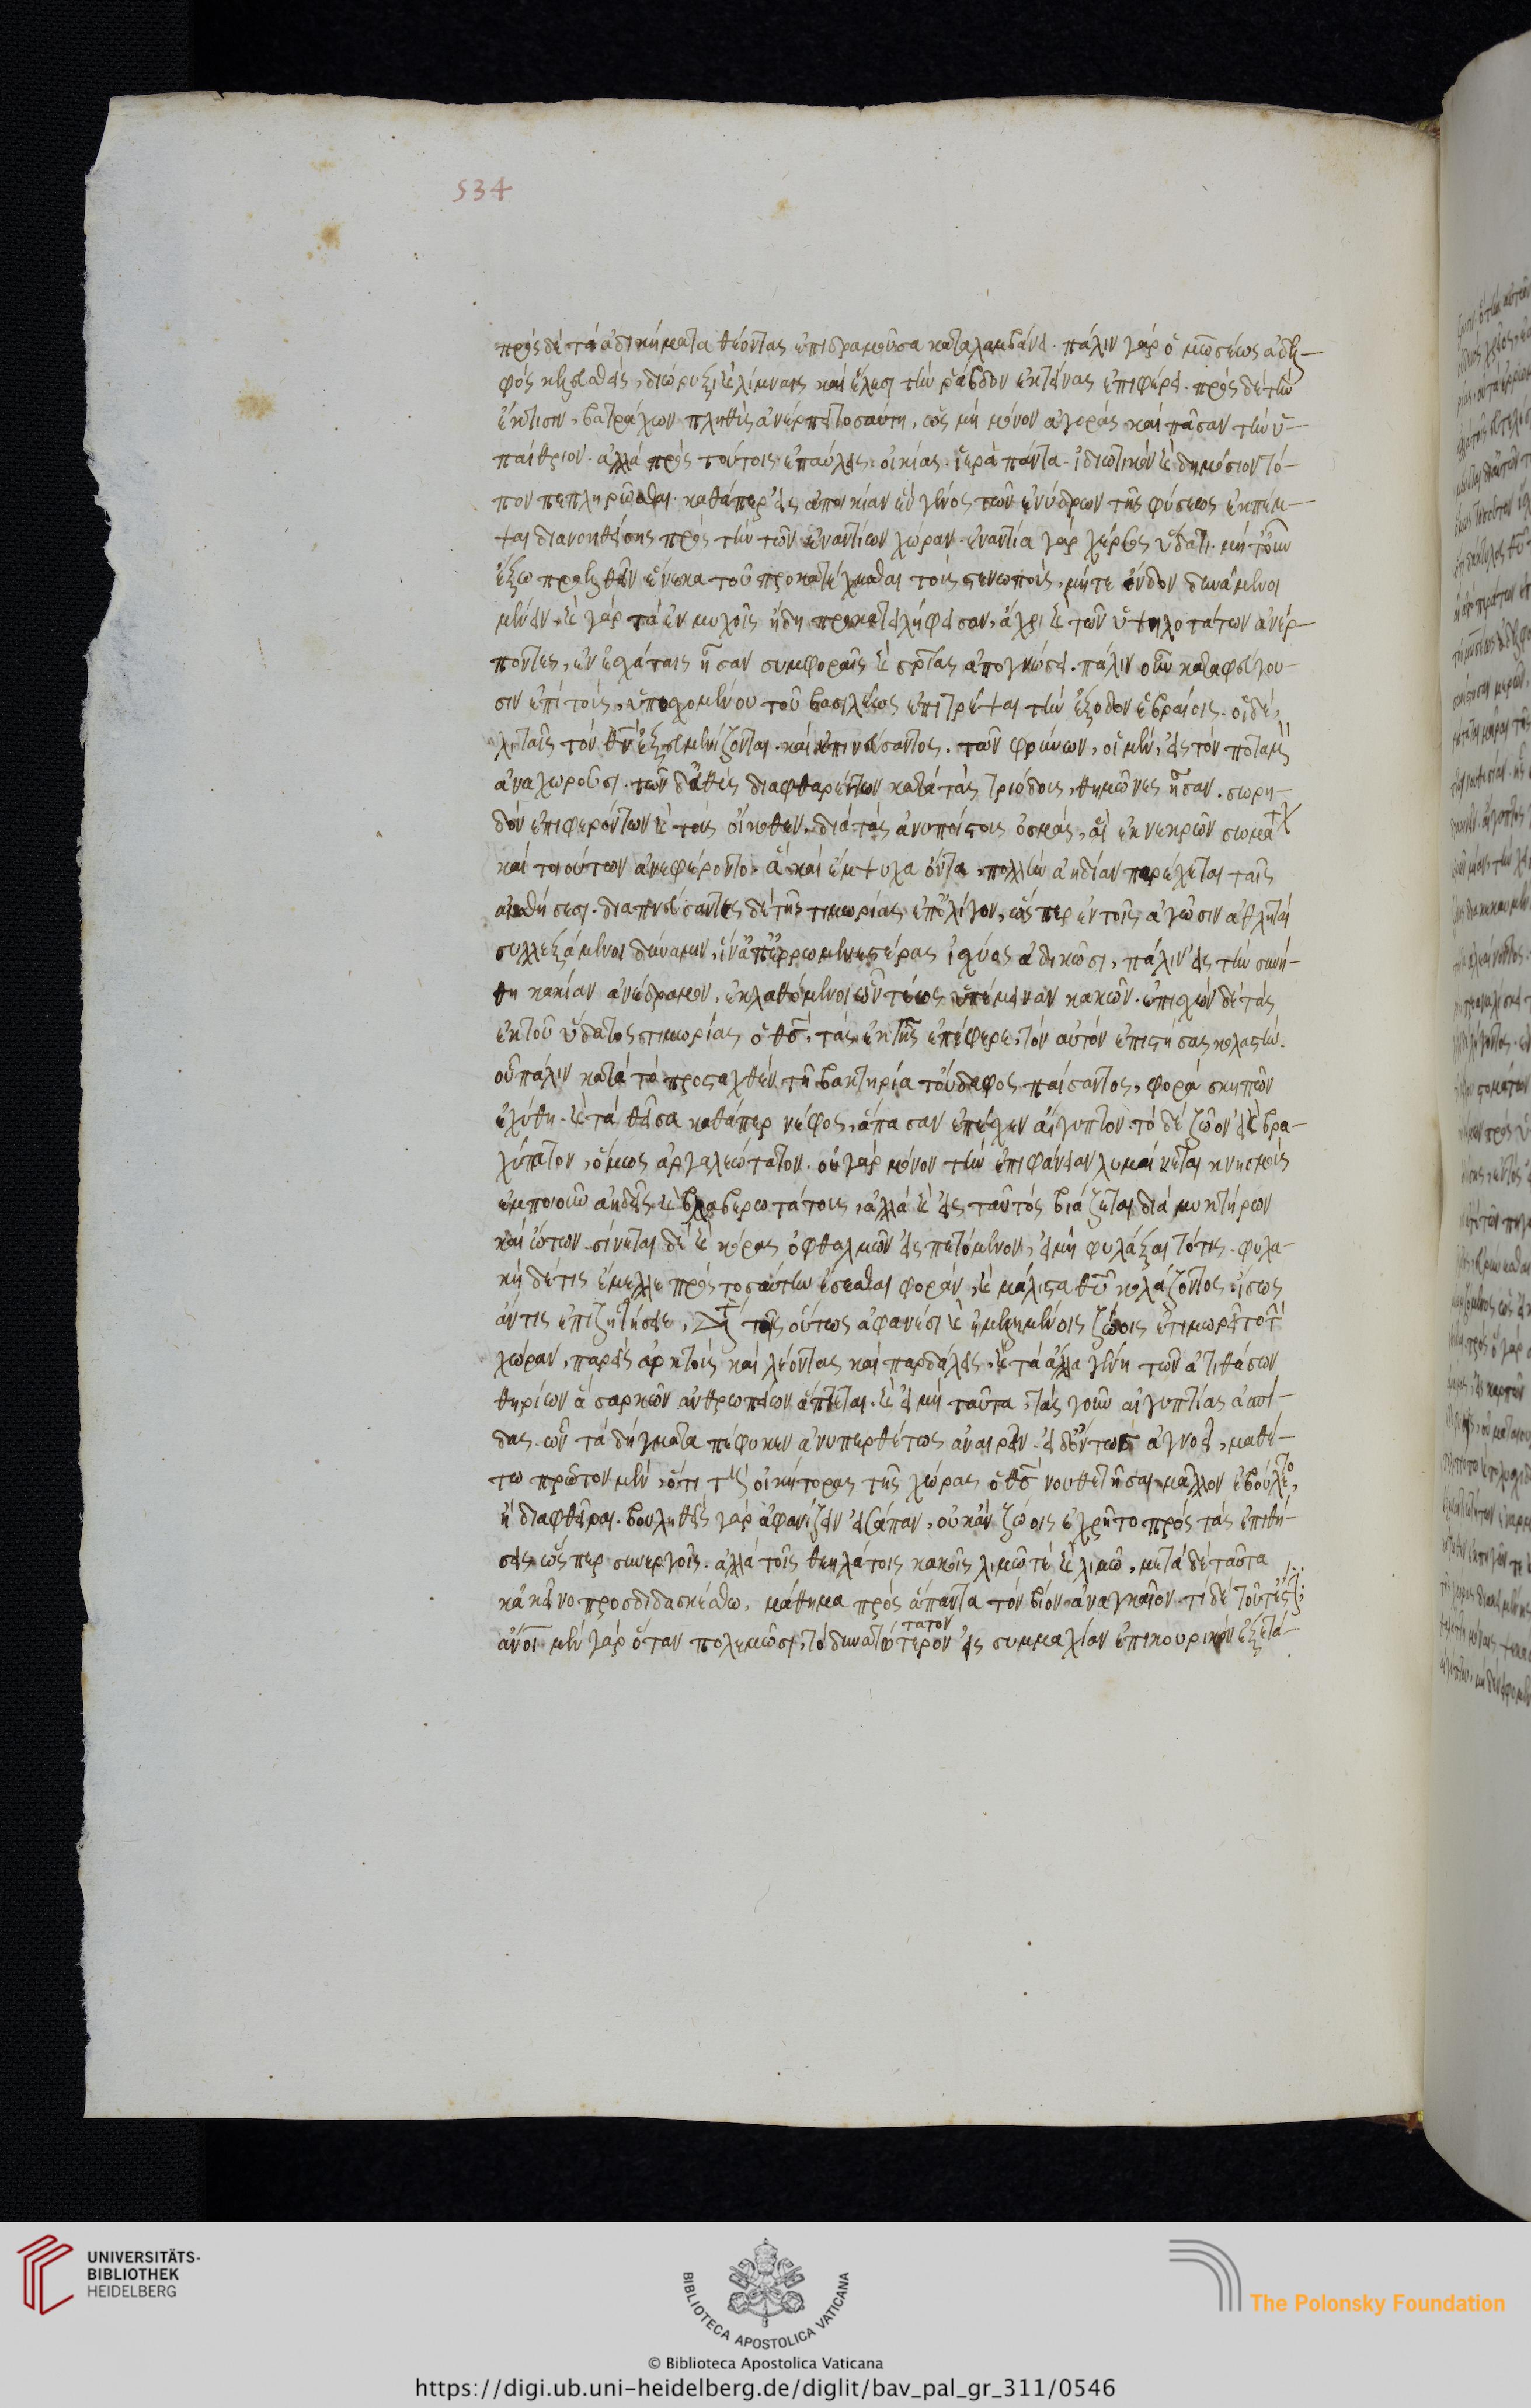 534
πρὸς δὲ τὰ ἀδικήματα θέοντας ἐπιδραμοῦσα καταλαμβάνει. πάλιν γὰρ ὁ μωσέως ἀδελ-
φὸς κελευσθεὶς, διώρυξι καὶ λίμναις καὶ ἕλεσι τὴν ῥάβδον ἐκτείνας ἐπιφέρει. πρὸς δὲ τὴν
ἔκτισιν, βατράχων πληθὺς ἀνέρπει τοσαύτη, ὡς μὴ μόνον ἀγορὰς καὶ πᾶσαν τὴν ὑ-
παίθριον. ἀλλὰ πρὸς τούτοις ἐπαύλεις. οἰκίας. ἱερὰ πάντα. ἰδιωτικὸν καὶ δημόσιον τό-
πον πεπληρῶσθαι. καθάπερ εἰς ἀποικίαν ἓν γένος τῶν ἐνύδρων τῆς φύσεως ἐκπέμ-
ψαι διανοηθείσης πρὸς τὴν τῶν ἐναντίων χώραν. ἐναντία γὰρ χέρσος ὕδατι. μήτ' οὖν
ἔξω προελθεῖν ἕνεκα τοῦ προκατέχεσθαι τοὺς στενωποὺς, μήτε ἔνδον δυνάμενοι
μένειν, καὶ γὰρ τὰ ἐν μυχοῖς ἤδη προκατειλήφεισαν, ἄχρι καὶ τῶν ὑψηλοτάτων ἀνέρ-
ποντες, ἐν ἐσχάταις ἦσαν συμφοραῖς καὶ σωτηρίας ἀπογνώσει. πάλιν οὖν καταφεύγου-
σιν ἐπὶ τοὺς, ὑποσχομένου τοῦ βασιλέως ἐπιτρέψαι τὴν ἔξοδον ἑβραίοις. οἱ δὲ,
λιταῖς τὸν θν ἐξευμενίζονται. καὶ ἐπινεύσαντος. τῶν φρύνων, οἱ μὲν, εἰς τὸν ποταμὸν
ἀναχωροῦσι. τῶν δ' εὐθὺς διαφθαρέντων κατὰ τὰς τριόδους, θημῶνες ἦσαν. σωρη-
δὸν ἐπιφερόντων καὶ τοὺς οἴκοθεν, διὰ τὰς ἀνυποίστους ὀσμάς, αἳ ἐκ νεκρῶν σωμάτων
καὶ τοιούτων ἀνεφέροντο. ἃ καὶ ἔμψυχα ὄντα, πολλὴν ἀηδίαν παρέχεται ταῖς
αἰσθήσεσι. διαπνεύσαντες δὲ τῆς τιμωρίας ἐπ' ὀλίγον, ὥσπερ ἐν τοῖς ἀγῶσιν ἀθληταὶ
συλλεξάμενοι δύναμιν, ἵν' ἀπ' ἐρρωμενεστέρας ἰσχύος ἀδικῶσι, πάλιν εἰς τὴν συνή-
θη κακίαν ἀνέδραμον, ἐκλαθόμενοι ὧν τέως ὑπέμειναν κακῶν. ἐπισχὼν δὲ τὰς
ἐκ τοῦ ὕδατος τιμωρίας ὁ θς, τὰς ἐκ γῆς ἐπέφερε, τὸν αὐτὸν ἐπιστήσας κολαστήν.
οὗ πάλιν κατὰ τὸ προσταχθὲν τῇ βακτηρία τοὔδαφος παίσαντος, φορὰ σκνιπῶν
ἐχύθη. καὶ ταθεῖσα καθάπερ νέφος, ἅπασαν ἐπέσχεν αἴγυπτον. τὸ δὲ ζῶον εἰ καὶ βρα-
χύτατον, ὅμως ἀργαλεώτατον. οὐ γὰρ μόνον τὴν ἐπιφάνειαν λυμαίνεται κνησμοὺς
ἐμποιοῦν ἀηδεῖς καὶ βλαβερωτάτους, ἀλλὰ καὶ εἰς ταντὸς βιάζεται διὰ μυκτήρων
καὶ ὤτων. σίνεται δὲ καὶ κόρας ὀφθαλμῶν εἰσπετόμενον, εἰ μὴ φυλάξαιτό τις. φυλα-
κὴ δὲ τίς ἔμελλε πρὸς τοσαύτην ἔσεσθαι φορὰν, καὶ μάλιστα θυ κολάζοντος. ἴσως
ἄν τις ἐπιζητήσειε, διατί τοῖς οὕτως ἀφανέσι καὶ ἠμελημένοις ζώοις ἐτιμωρεῖτο τὴν
χώραν, παρεὶς ἄρκτους καὶ λέοντας καὶ παρδάλεις, καὶ τὰ ἄλλα γένη τῶν ἀτιθάσων
θηρίων ἃ σαρκῶν ἀνθρωπείων ἅπτεται. καὶ εἰ μὴ ταῦτα, τὰς γοῦν αἰγυπτίας ἀσπί-
δας. ὧν τὰ δήγματα πέφυκεν ἀνυπερθέτως ἀναιρεῖν. εἰ δ' ὄντως ἀγνοεῖ, μαθέ-
τω πρῶτον μὲν, ὅτι τοὺς οἰκήτορας τῆς χώρας ὁ θς νουθετῆσαι μᾶλλον ἐβούλετο,
ἢ διαφθεῖραι. βουληθεὶς γὰρ ἀφανίζειν εἰσάπαν, οὐκ ἂν ζώοις ἐχρῆτο πρὸς τὰς ἐπιθέ-
σεις ὥσπερ συνεργοῖς. ἀλλὰ τοῖς θεηλάτοις κακοῖς λιμῶ τε καὶ λοιμῶ, μετὰ δὲ ταῦτα
κἀκεῖνο προσδιδασκέσθω, μάθημα πρὸς ἅπαντα τὸν βίον ἀναγκαῖον. τί δὲ τοῦτ' ἐστί;
τατον
ἄνοι μὲν γὰρ ὅταν πολεμῶσι, τὸ δυνατώτερον εἰς συμμαχίαν ἐπικουρικὸν ἐξετά-
UNIVERSITÄTS-
BIBLIOTHEK
HEIDELBERG
BIBLIOTECA APOSTOLICA VATICANA
The Polonsky Foundation
© Biblioteca Apostolica Vaticana
https://digi.ub.uni-heidelberg.de/diglit/bav_pal_gr_311/0546